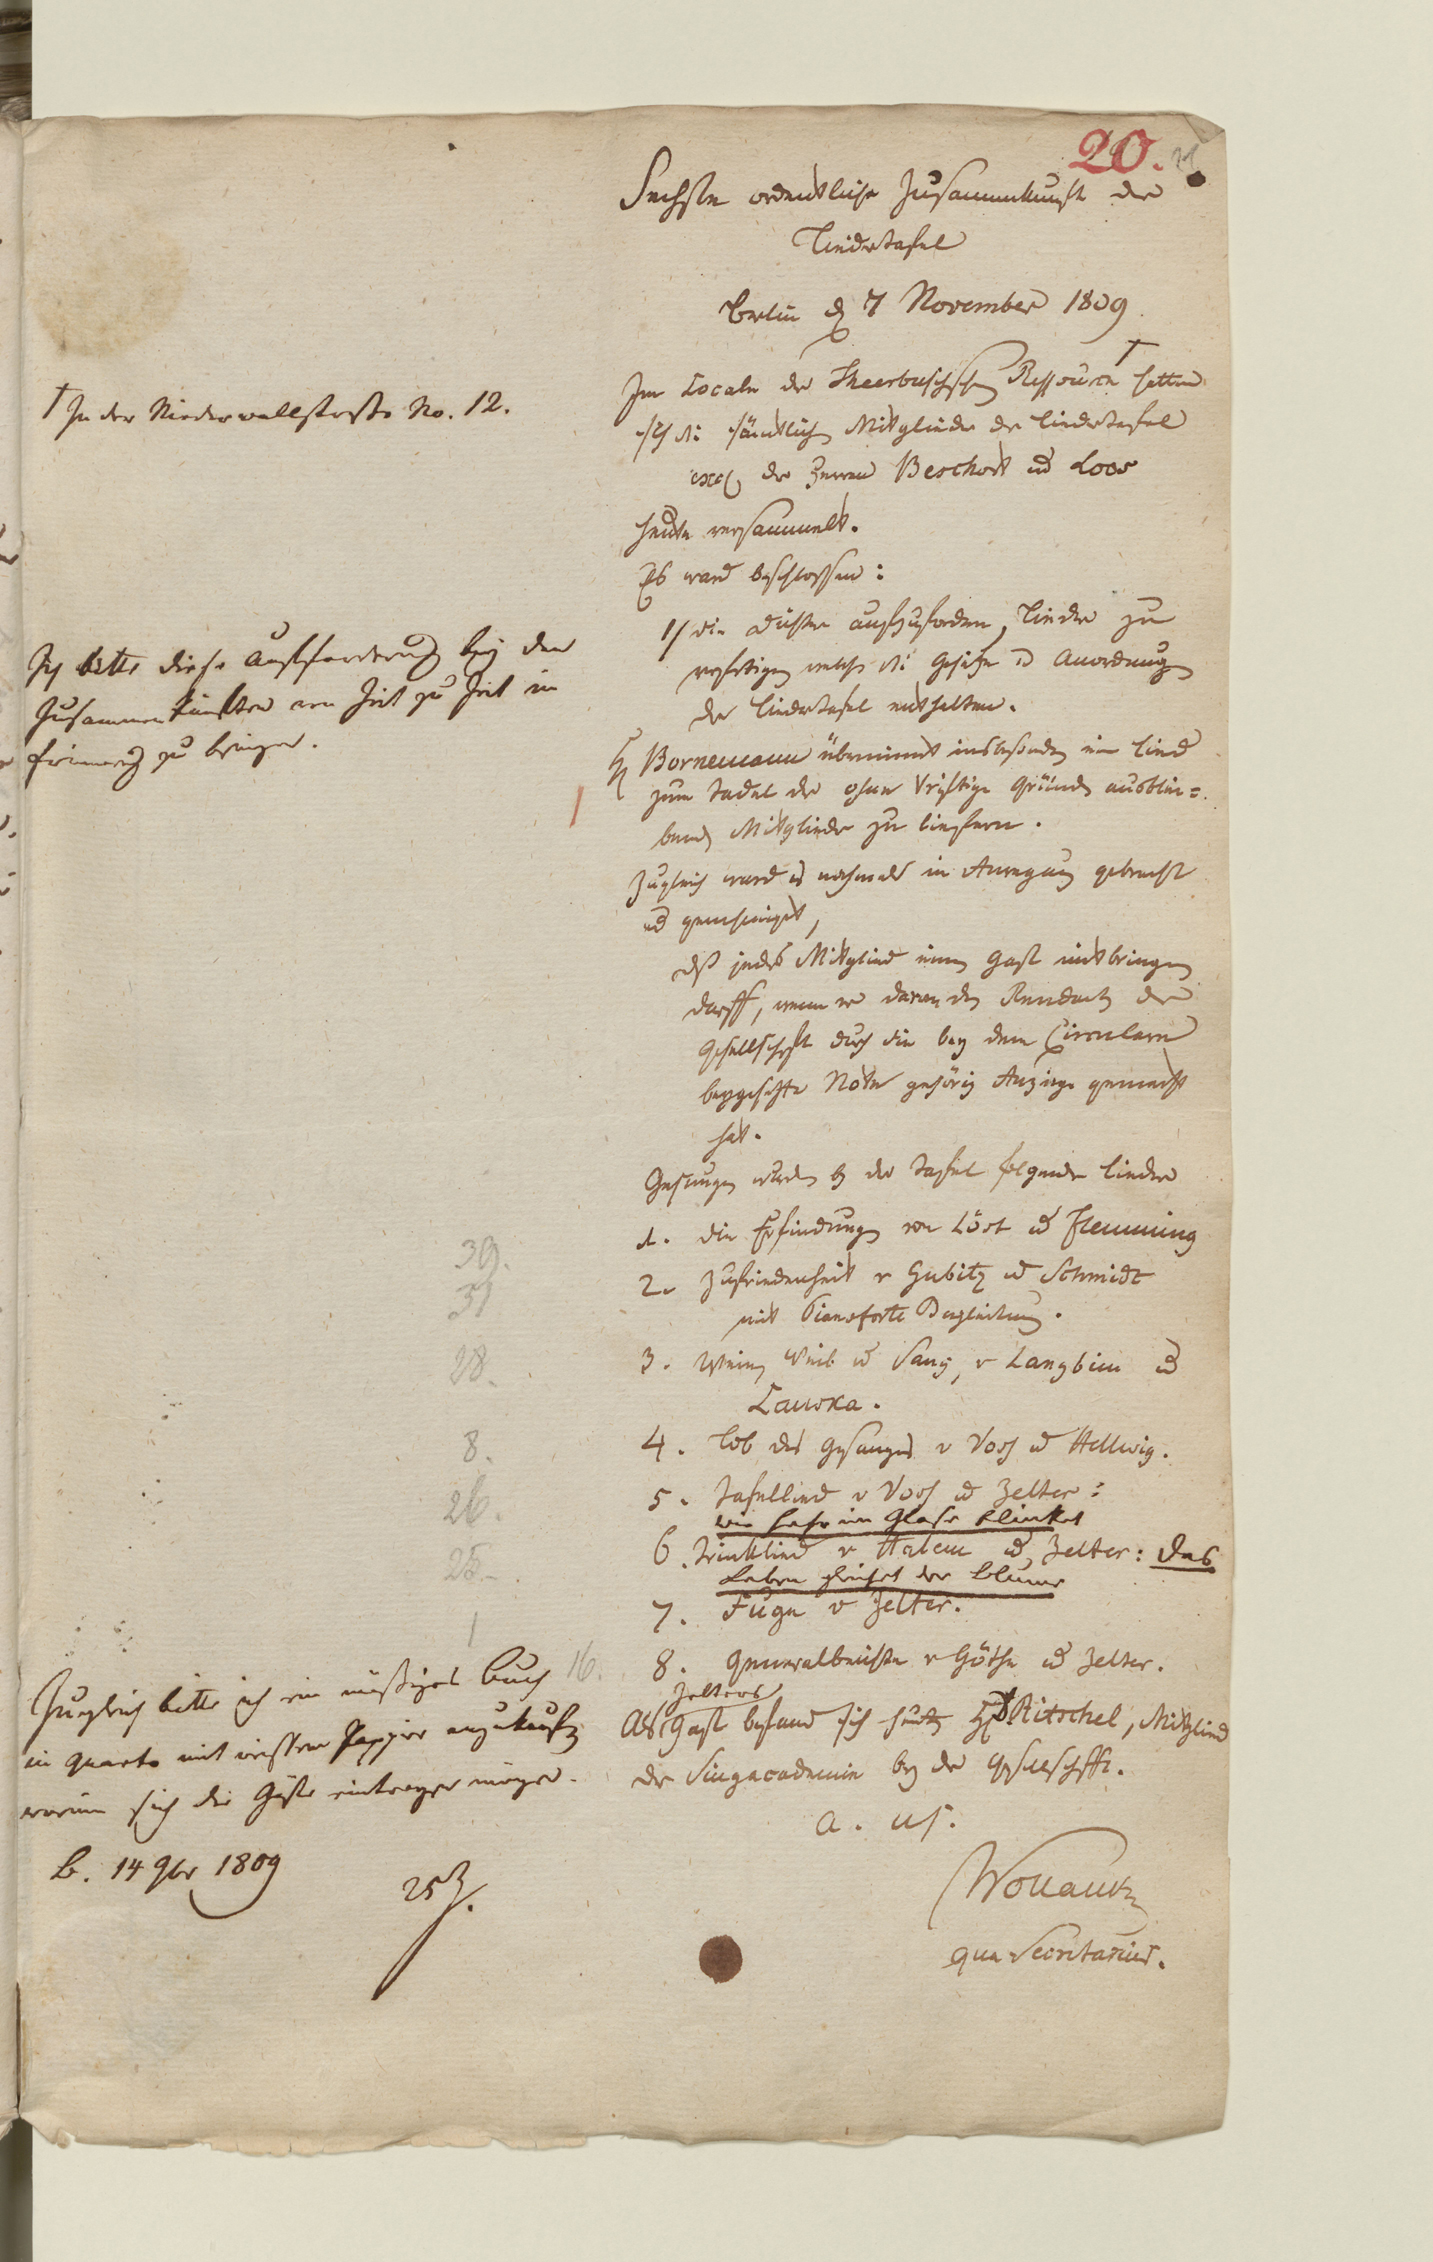 20.
21
Sechste ordentliche Zusammenkunft der
Liedertafel
Berlin d 7 November 1809.
Im Locale der Theerbuschschen Ressource † hatten
† In der Niederwallstraße No. 12.
sich die sämtlichen Mitglieder der Liedertafel
excl der Herren Beschort und Loos
heute versammelt.
Es ward beschlossen:
1/ die Dichter aufzufordern, Lieder zu
verfertigen welche die Gesetze u Anordnungen
der Liedertafel enthalten.
Ich bitte diese Aufforderung bey den
Zusammenkünften von Zeit zu Zeit in
Erinnerung zu bringen.
H Bornemann übernimmt insbesondere ein Lied
zum Tadel der ohne wichtige Gründe ausblei=
benden Mitglieder zu liefern.
Zugleich ward es nochmals in Anregung gebracht
und genehmigt,
daß jedes Mitglied einen Gast mitbringen
darff, wenn er davon den Rendanten der
Gesellschaft durch die bey dem Circulare
beygesetzte Note gehörig Anzeige gemacht
hat.
Gesungen wurden bey der Tafel folgende Lieder
39. 1. die Erfindungen von Löst und Flemming
31 2. Zufriedenheit v Gubitz und Schmidt
mit Pianoforte Begleitung.
28. 3. Wein, Weib und Sang, v Langbein und
Lauska.
8. 4. Lob des Gesanges v Voss und Hellwig.
26. 5. Tafellied v Voss und Zelter:
wie hehr im Glase blinket
25. 6. Trinklied v Halem und Zelter: das
Leben gleichet der Blume
1 7. Fuge v Zelter.
16. 8. Generalbeichte v Göthe und Zelter.
Zelters
Als Gast befand sich heute H D. Ritschel, Mitglied
der Singacademie bey der Gesellschafft.
a. us.
Wollank
qua Secretarius.
Zugleich bitte ich ein mäßiges Buch
in quarto mit weissem Papier anzukaufen
worinn sich die Gäste eintragen mögen.
B. 14 9br 1809
25 Z.